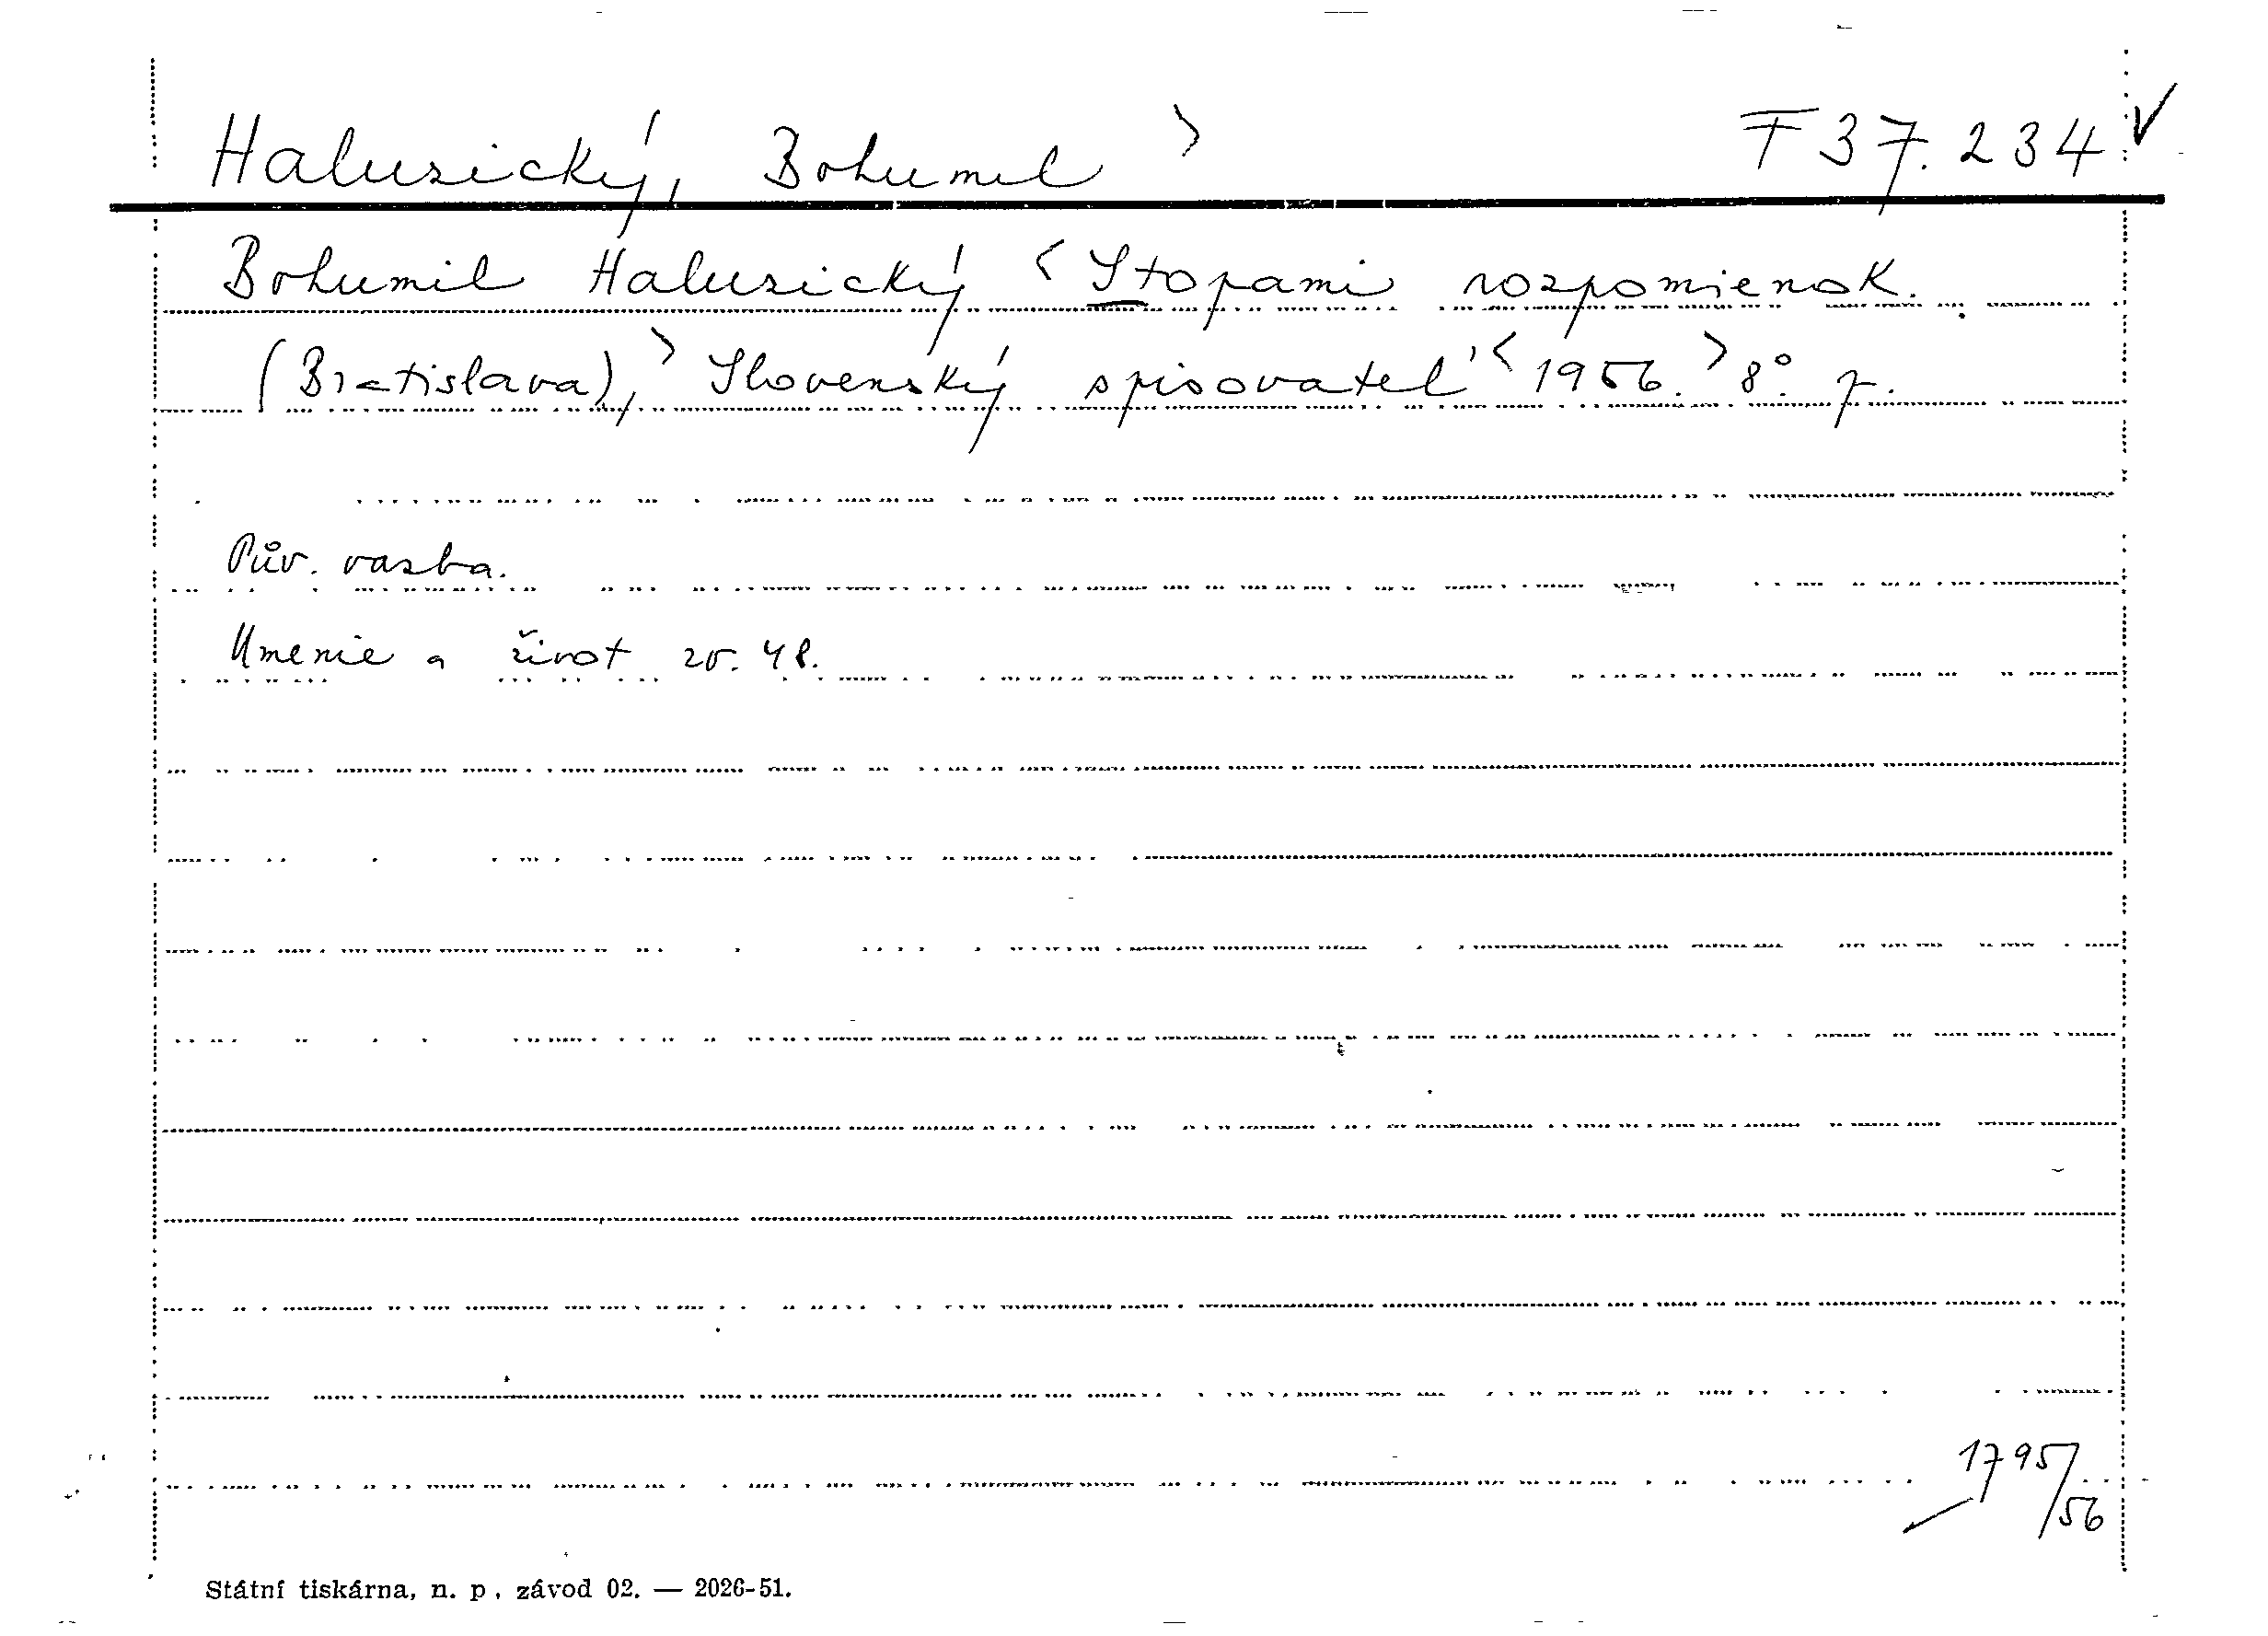 Haluzický, Bohumil > F 37.234 ✓
Bohumil Haluzický < Stopami rozpomienok.
(Bratislava), > Slovenský spisovatel' < 1956. > 8°. p.
Pův. vazba.
Umenie a život zv. 48.
1795/56
Státní tiskárna, n. p., závod 02. — 2026-51.